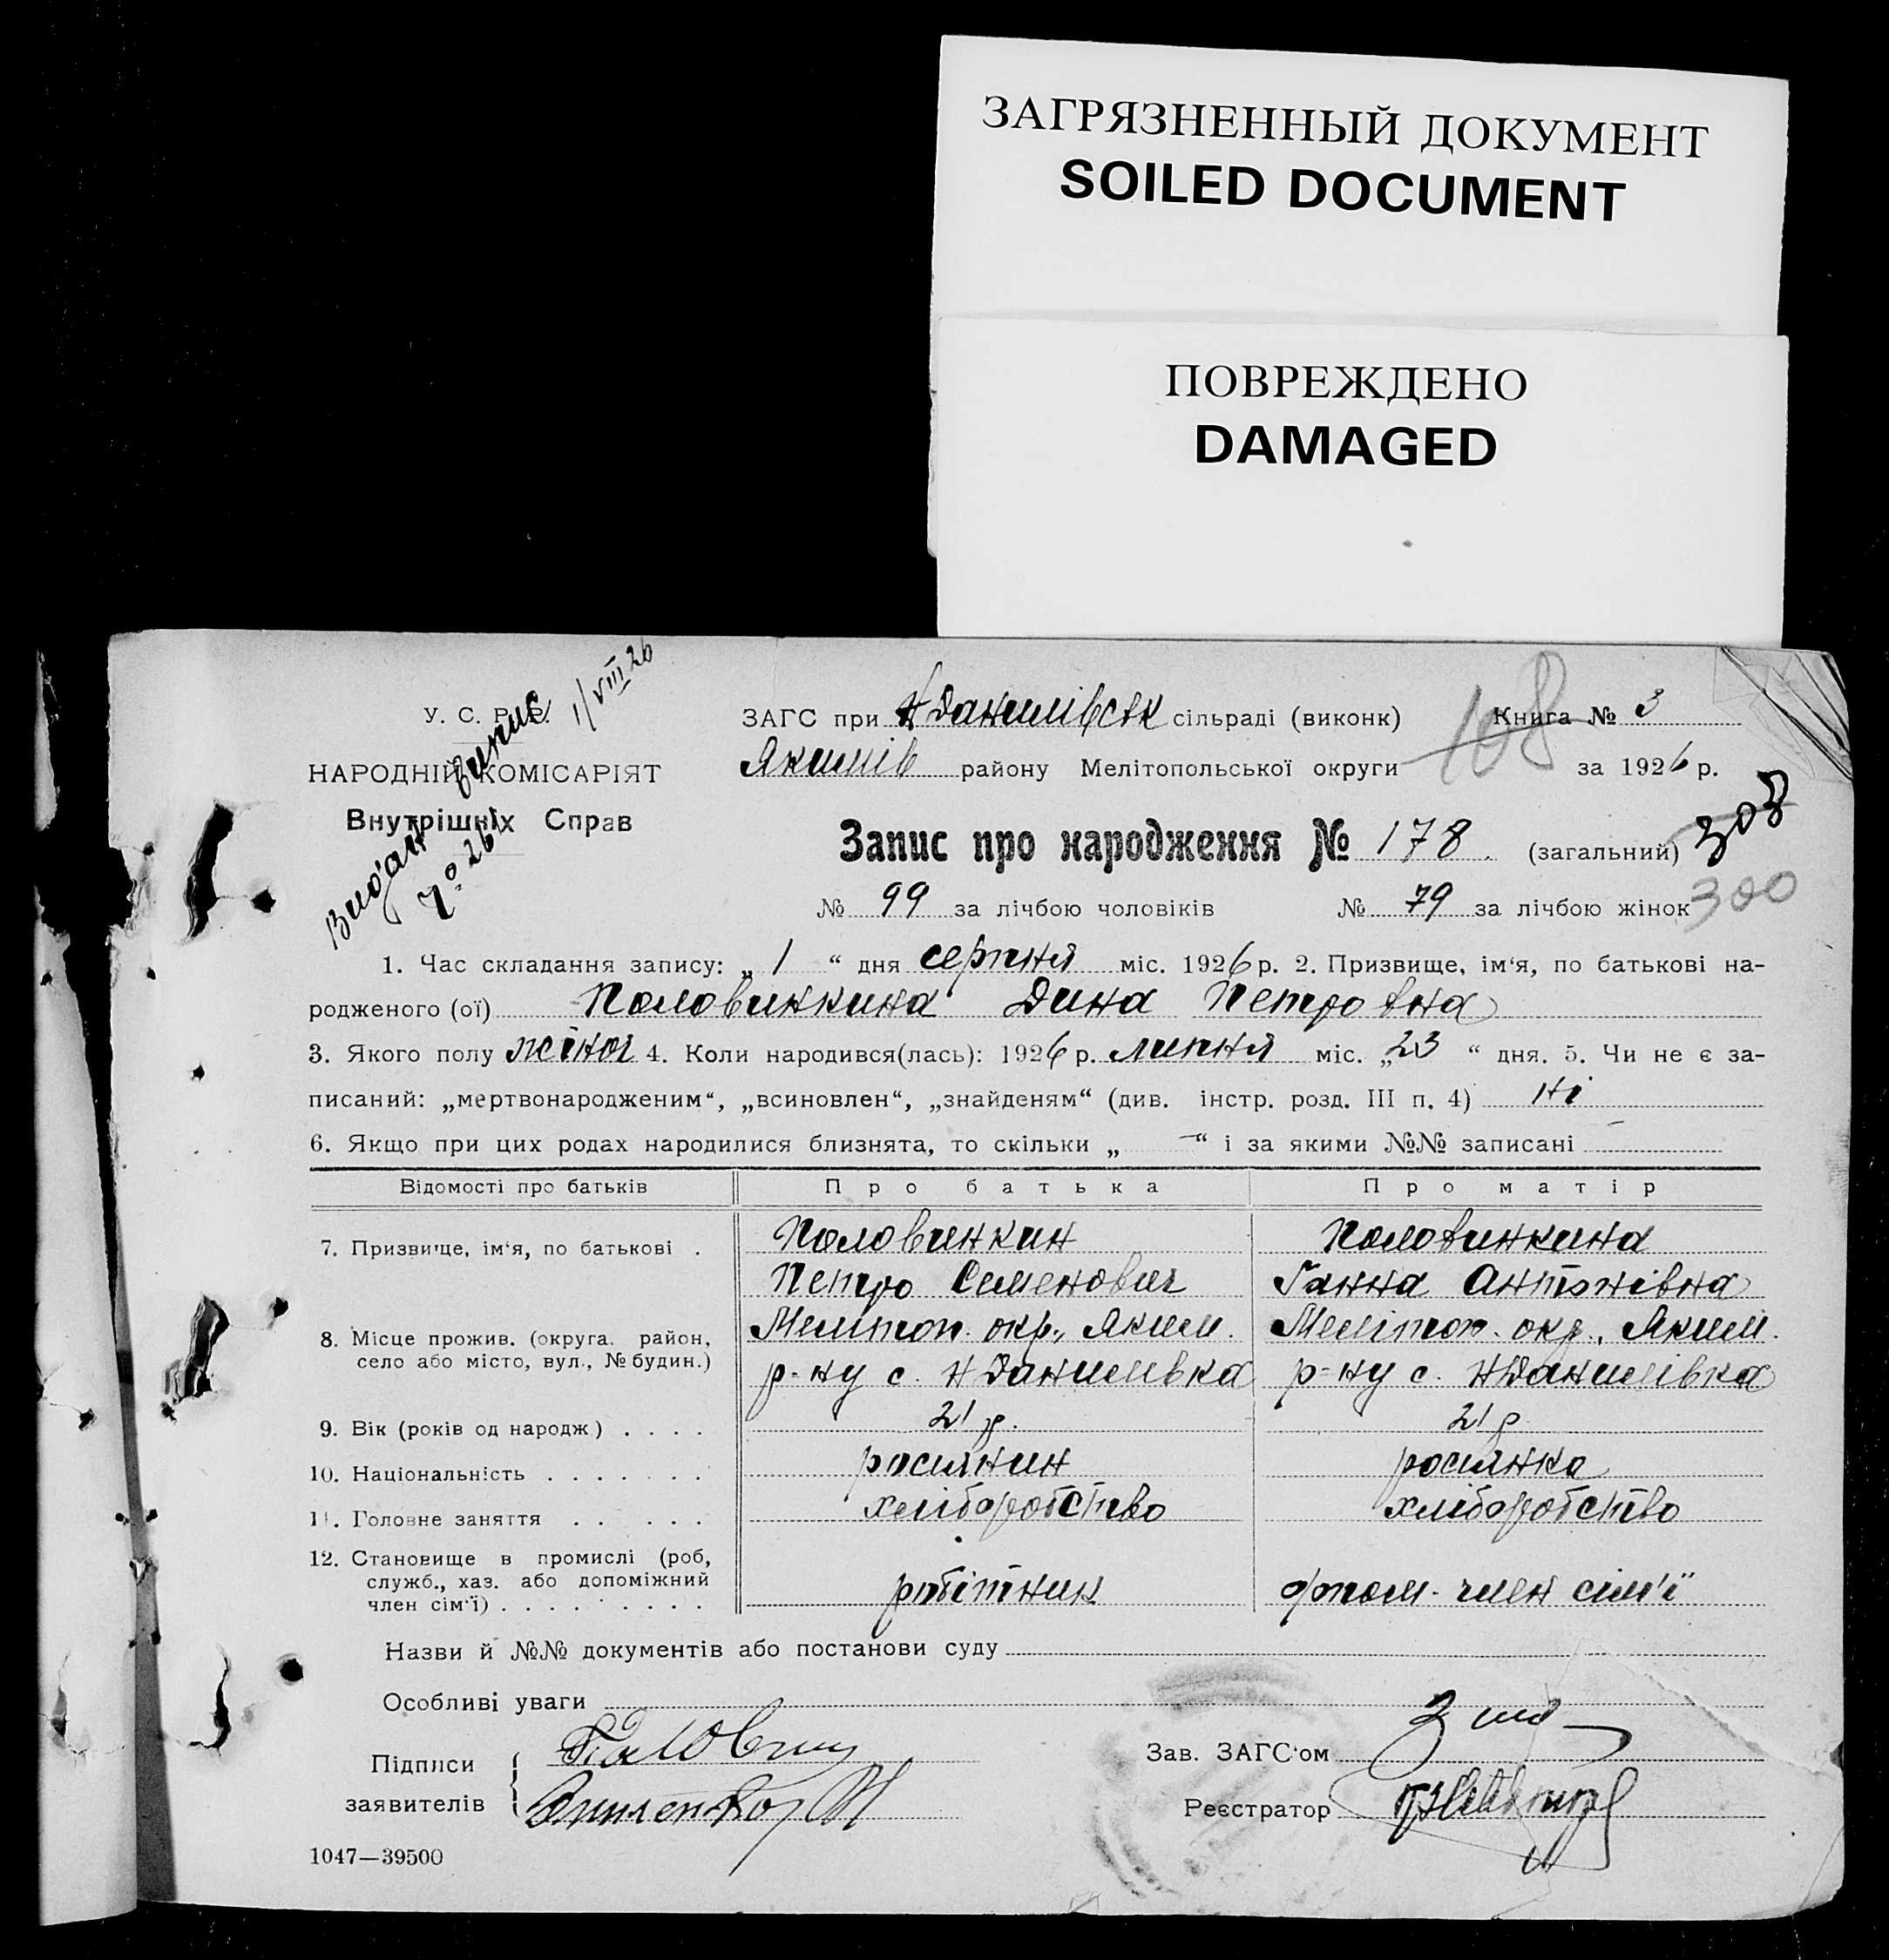 ЗАГРЯЗНЕННЫЙ ДОКУМЕНТ
SOILED DOCUMENT
ПОВРЕЖДЕНО
DAMAGED
У. С. Р. Р.
НАРОДНІЙ КОМІСАРІЯТ
Внутрішніх Справ
Видан випис
1/VIII 26
ЗАГС при Н Данилівськ сільраді (виконк) Книга № 3
108
Якимів району Мелітопольської округи за 1926 р.
Запис про народження № 178. (загальний) 308
№ 99 за лічбою чоловіків № 79 за лічбою жінок 300
1. Час складання запису: „ 1 “ дня серпня міс. 1926 р. 2. Призвище, ім'я, по батькові на-
родженого (ої) Половинкина Дина Петровна
3. Якого полу жіноч 4. Коли народився(лась): 1926 р. липня міс. „ 23 “ дня. 5. Чи не є за-
писаний: „мертвонародженим“, „всиновлен“, „знайденям“ (див. інстр. розд. III п. 4) Ні
6. Якщо при цих родах народилися близнята, то скільки „ — “ і за якими №№ записані
Відомості про батьків Про батька Про матір
7. Призвище, ім'я, по батькові . Половинкин Половинкина
Петро Семенович Ганна Антонівна
8. Місце прожив. (округа. район, село або місто, вул., № будин.) Меліттоп. окр., Яким. Меліттоп. окр., Яким.
р-ну с. Н Данилівка р-ну с. Н Данилівка
9. Вік (років од народж) . . . . 21 р. 21 р.
10. Національність . . . . . . . росиянин росиянка
11. Головне заняття . . . . . хліборобство хліборобство
12. Становище в промислі (роб,
служб., хаз. або допоміжний
член сім'ї) . . . . . . . . . робітник допом. член сім'ї
Назви й №№ документів або постанови суду
Особливі уваги
Підписи
заявителів
Зав. ЗАГС'ом
Реєстратор
1047—39500